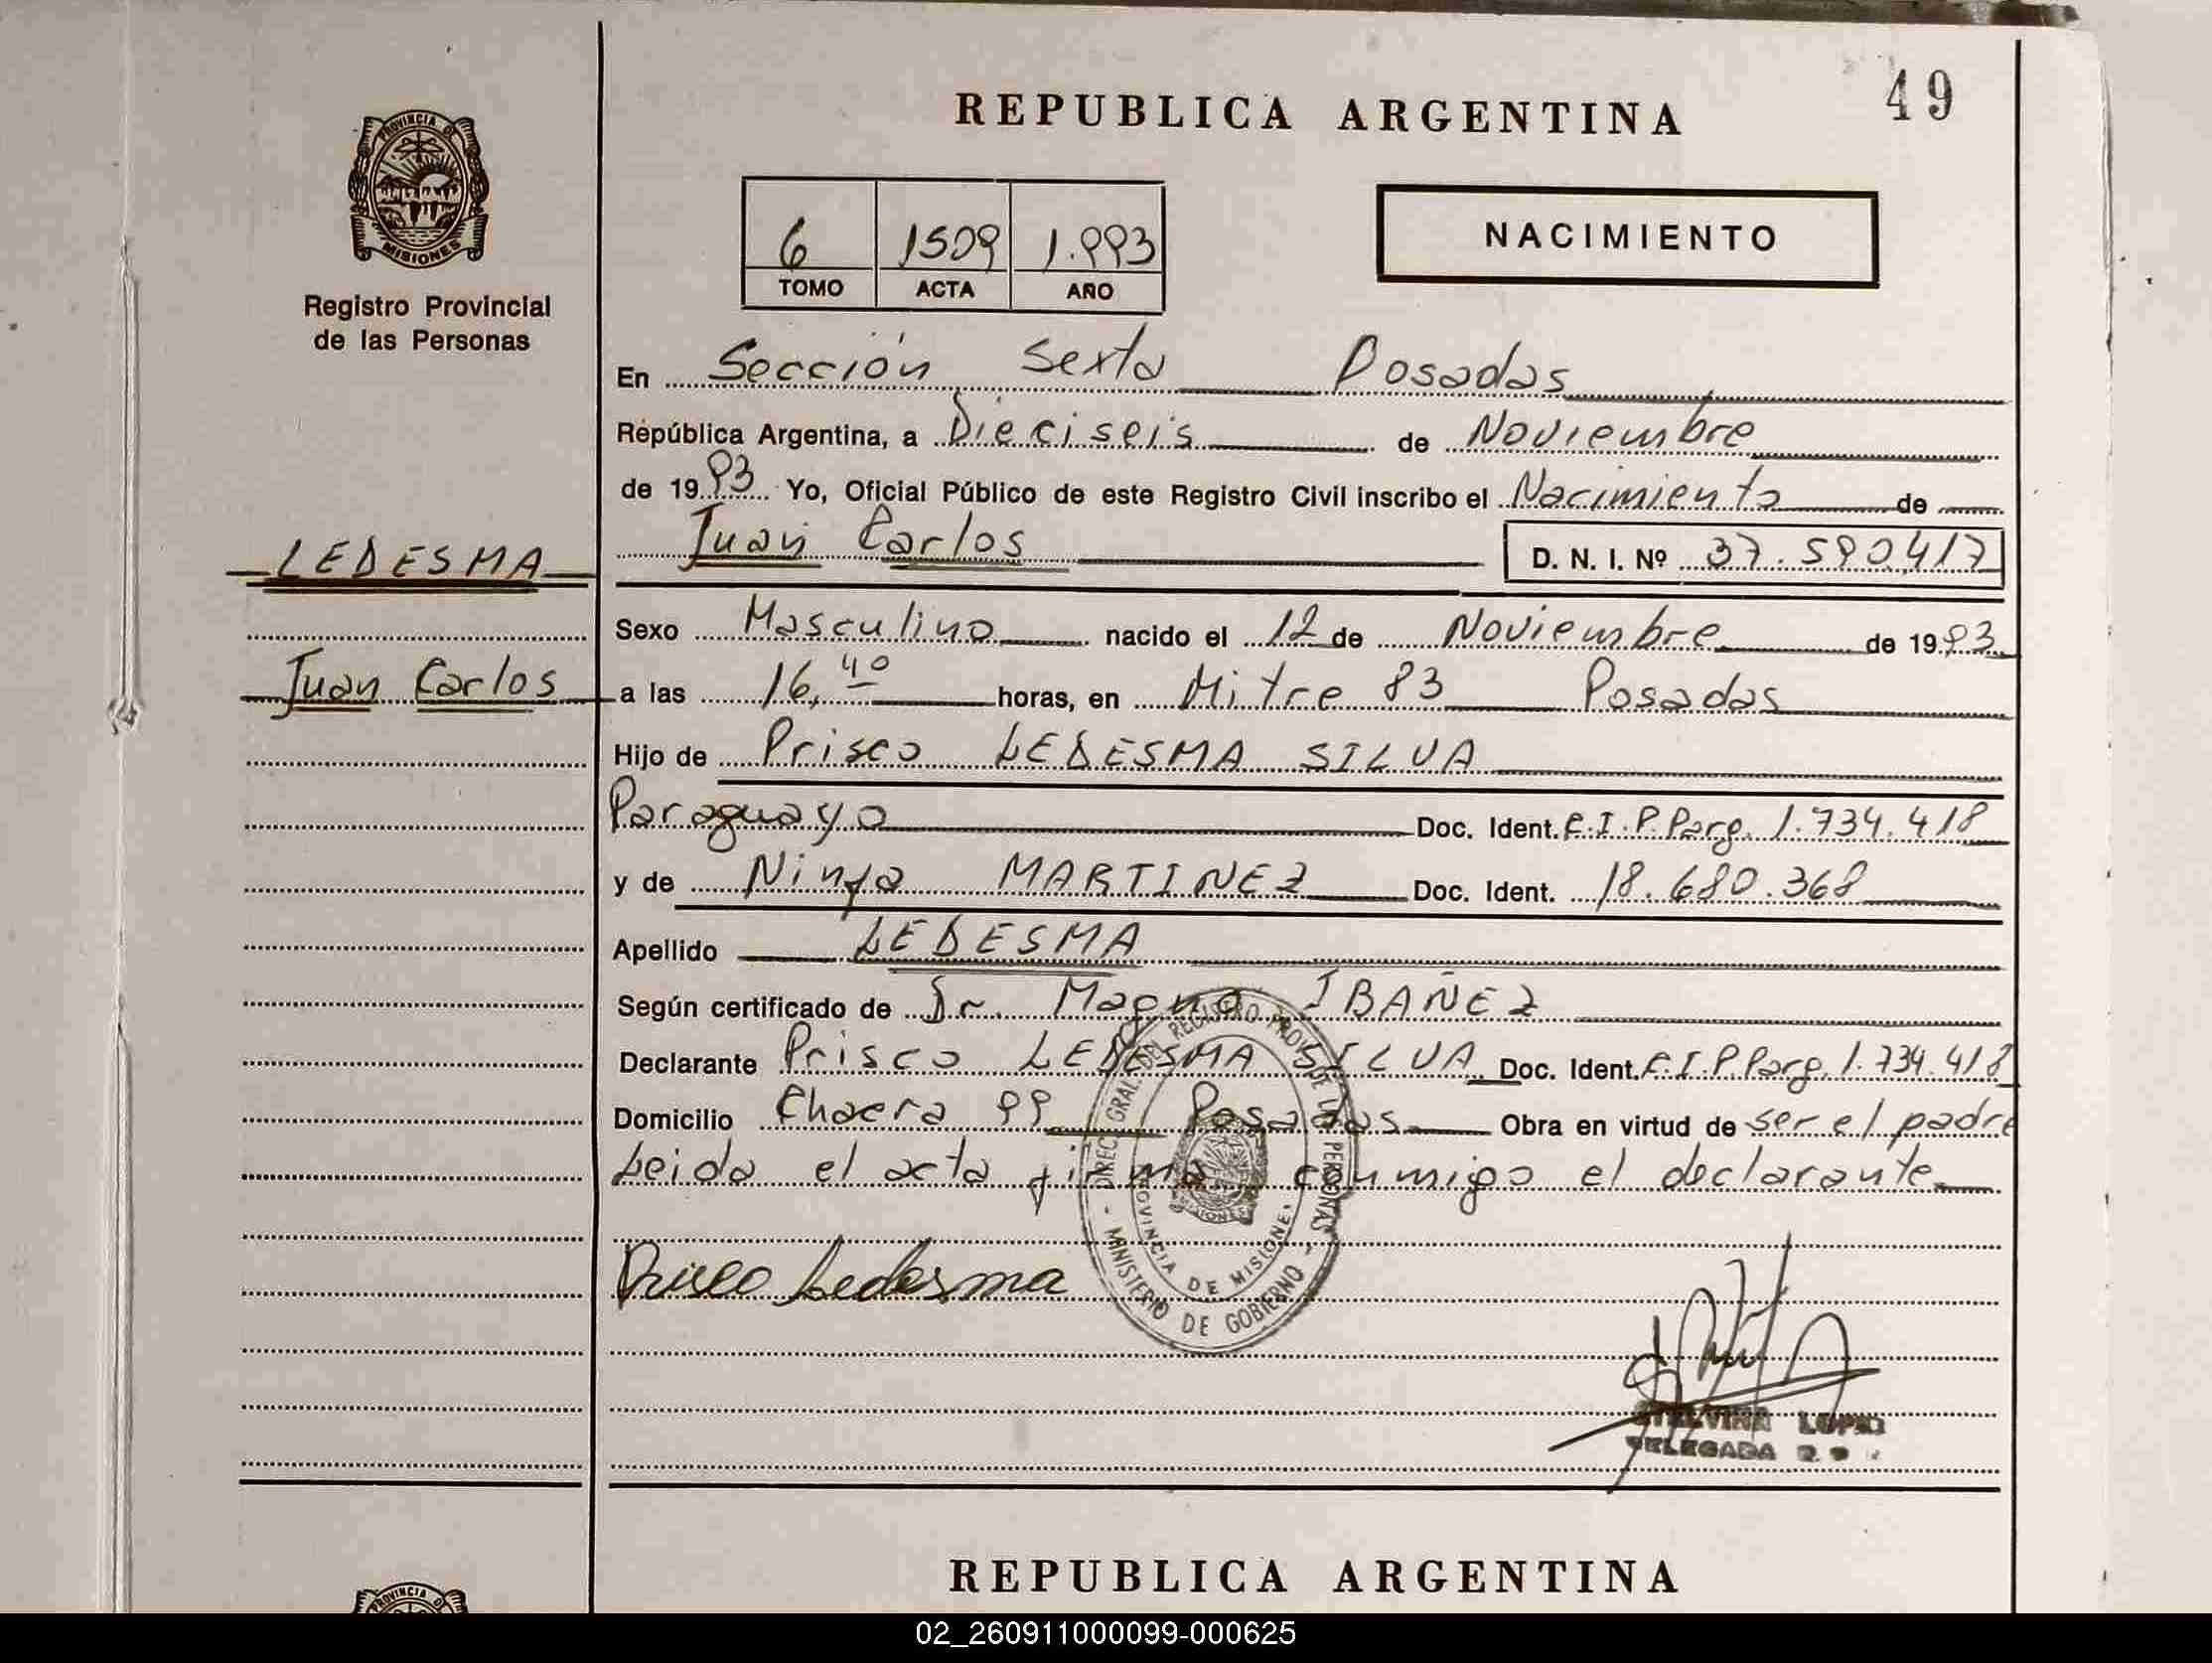 49
REPUBLICA ARGENTINA
PROVINCIA DE
MISIONES
Registro Provincial
de las Personas
6 1509 1.993
TOMO ACTA AÑO
NACIMIENTO
En Sección Sexta Posadas
República Argentina, a Dieciseis de Noviembre
de 1993 Yo, Oficial Público de este Registro Civil inscribo el Nacimiento de
Juan Carlos D. N. I. Nº 37.590.417
LEDESMA
Sexo Masculino nacido el 12 de Noviembre de 1993
Juan Carlos
a las 16,40 horas, en Mitre 83 Posadas
Hijo de Prisco LEDESMA SILVA
Paraguayo Doc. Ident. C.I.P.Parg. 1.734.418
y de Ninfa MARTINEZ Doc. Ident. 18.680.368
Apellido LEDESMA
Según certificado de Dr. Magno IBAÑEZ
Declarante Prisco LEDESMA SILVA Doc. Ident. C.I.P.Parg. 1.734.418
Domicilio Chacra 99 Posadas Obra en virtud de ser el padre
Leida el acta firma conmigo el declarante
Prisco Ledesma
DIREC. GRAL. DEL REGISTRO PROV. DE LAS PERSONAS
PROVINCIA DE MISIONES
MINISTERIO DE GOBIERNO
MISIONES
LOPEZ
DELEGADA
REPUBLICA ARGENTINA
PROVINCIA DE
02_260911000099-000625